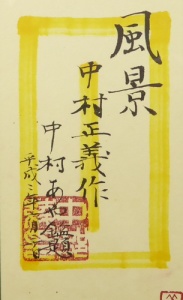 風景
中村正義作
中村あや鑑題
平成二年六月三日